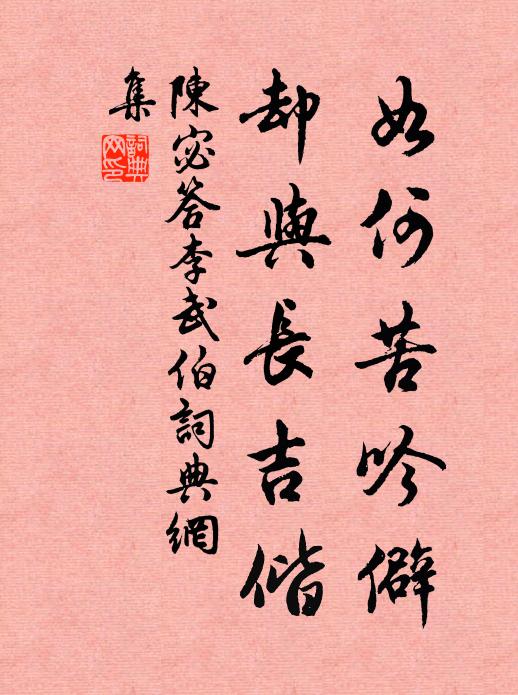 如何苦吟僻
却與長吉偕
陳宓答李武伯詞典網
集
詞典
网印